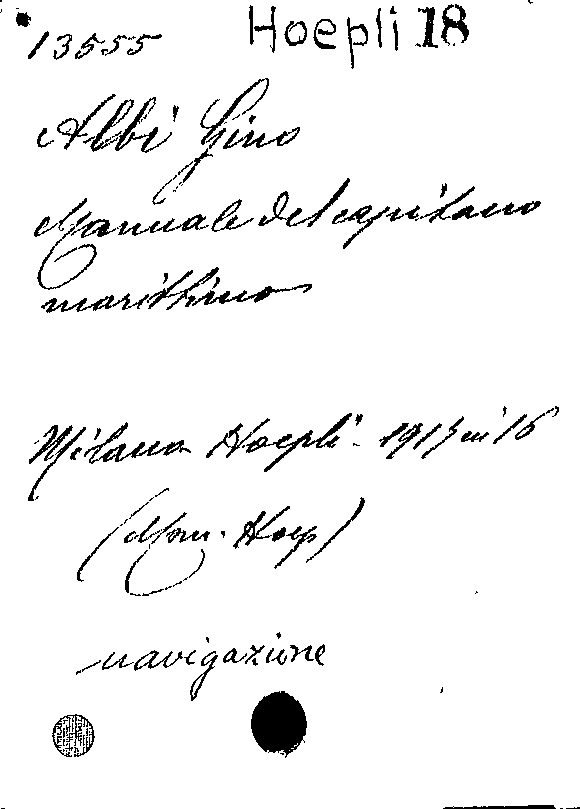 13555 Hoepli 18
Albi Gino
Manuale del capitano
marittimo
Milano Hoepli - 1913 in 16
(Man. Hoep)
navigazione